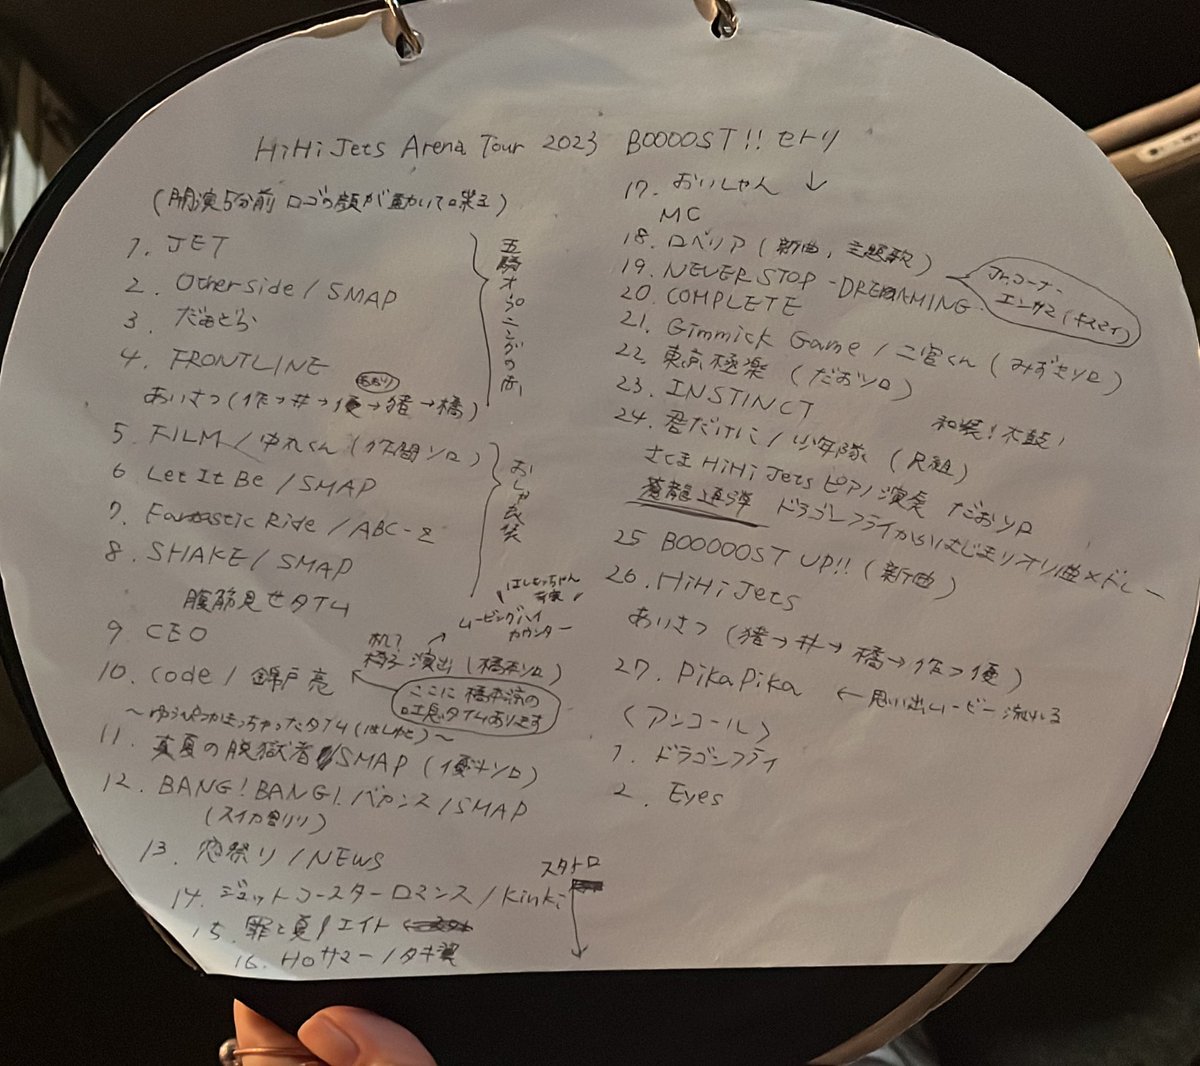 HiHi Jets Arena Tour 2023 BOOOOST!! セトリ
(開演5分前 ロゴの顔が動いて喋る)
1. JET
2. Otherside / SMAP
3. だぁどぁ
4. FRONTLINE
五騎オープニングの衣
あおり
あいさつ(作→井→優→猪→橋)
5. FILM / ゆれくん (作間ソロ)
6 Let It Be / SMAP
7. Fantastic Ride / ABC-Z
8. SHAKE / SMAP
腹筋見せタイム
おしゃれ衣装
はしもっちゃん
ムービングハイ
カウンター
9 CEO
机?
椅子演出 (橋本ソロ)
10. Code / 錦戸亮
ここに橋本涼の
吐息タイムあります
11. 真夏の脱獄者 / SMAP (優斗ソロ)
12. BANG! BANG! バカンス / SMAP
(スイカ割り)
13. 恋祭り / NEWS
スタトロ
14. ジェットコースターロマンス / Kinki
15. 罪と夏 / エイト
16. HOサマー / タキ翼
17. おいしゃん
MC
18. ロベリア (新曲, 主題歌)
19. NEVER STOP -DREAMING-
Jr.コーナー
エンガミ (キスマイ)
20. COMPLETE
21. Gimmick Game / 二宮くん (みずきソロ)
22. 東京極楽 (だおソロ)
23. INSTINCT
和装! 太鼓!
24. 君だけに / 少年隊 (尺組)
さくま HiHi Jets ピアノ演奏 だおソロ
蒼龍連弾 ドラゴンフライからはじまりオリ曲×ドレー
25 BOOOOOST UP!! (新曲)
26. HiHi Jets
あいさつ (猪→井→橋→作→優)
27. PikaPika ← 思い出ムービー流れる
(アンコール)
1. ドラゴンフライ
2. Eyes